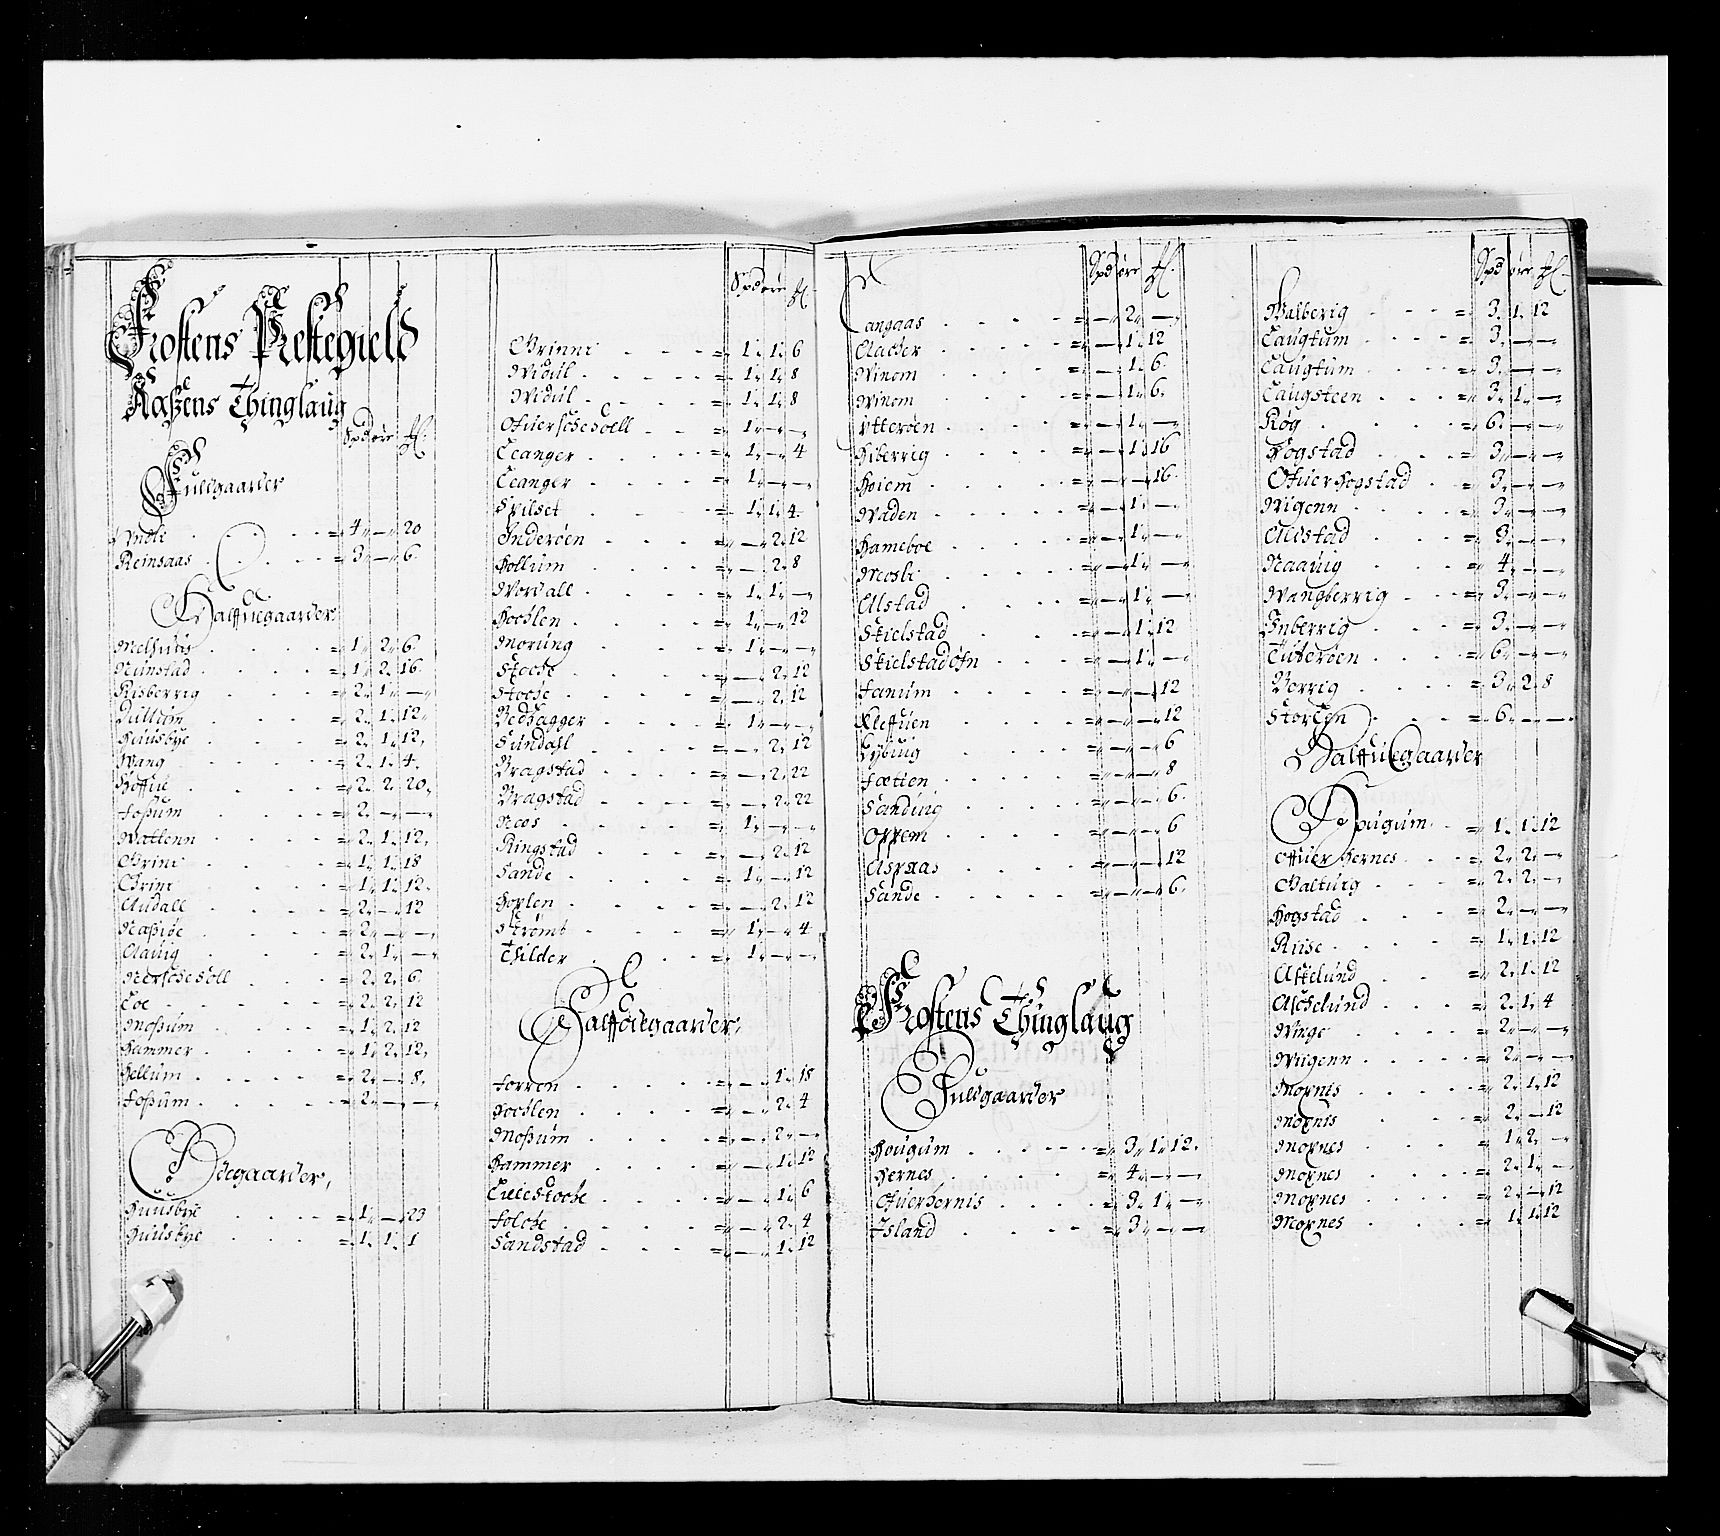 Frostens Prestegield
Aaßens Thinglaug
Spd øre
Fuldgaarder
= 4 — 20
Reinsaas = 3 — 6
Halffuegaarder
Melhuus = 1 2 6
Nünstad = 1 2 16
Risberrig = 2 1 —
= 2 1 12
Huusbye = 2 1 12
Wang = 2 1 4
Hoffue = 2 2 20
Foßum = 2 — —
Wattenn = 2 1 12
Grint = 1 1 18
Grint = 1 1 12
Audall = 2 — 12
Naßiøe = 2 — —
Aauig = 2 1 —
= 2 2 6
Loe = 2 2 12
Moßum = 1 2 12
Hammer = 1 2 12
Hellum = 2 — 8
Foßum = 2 — —
Ødegaarder
Huusbye = 1 — 23
Huusbye = 1 1 1
Spd øre
Grinni = 1 1 6
Widül = 1 1 8
Widül = 1 1 8
= 1 — —
Leanger = 1 — 4
Leanger = 1 — —
Spilset = 1 1 4
Inderøen = — 2 12
Hollum = — 2 8
Wordall = 1 1 —
Hocklen = 1 — 12
Morüng = 1 — —
Stocke = — 2 12
Stocke = — 2 12
Vedsagger = 1 — —
Sundahl = — 2 12
Bragstad = — 2 22
Bragstad = — 2 22
Nees = 1 — —
Ringstad = — 2 12
Sande = 1 — 12
Hoplen = — 2 12
Strømb = 1 — 4
Thilder = 1 — —
Halffødegaarder
Forren = — 1 18
Hocklen = — 2 4
Moßum = — 2 —
Hammer = — 1 12
= — 1 6
Folcke = — 2 4
Sandstad = — 1 12
Spd øre
Langaas = — 2 —
Aacker = — 1 12
Winom = — 1 6
Winom = — 1 6
Ytterøen = — 1 —
Hiberrig = — 1 16
Hoiem = — — 16
Waden = — 1 —
Hameboe = — 1 —
Mosli = — 1 —
Alstad = — 1 —
Stielstad = — 1 12
= — 1 —
Fanum = — — 12
Kleffuen = — — 12
Lybüg = — — 6
Fætten = — — 8
Sanding = — — 6
Oppem = — — 6
Aspaas = — — 12
Sande = — — 6
Frostens Thinglaug
Fuldgaarder
Hougum = 3 1 12
Hernes = 4 — —
Ofuerhernis = 3 1 —
Island = 3 — —
Spd øre
Walberig = 3 1 12
Laugtum = 3 — —
Laugtum = 3 — —
Laugsteen = 3 1 —
Røg = 6 — —
Hogstad = 3 — —
Ofuer Hogstad = 3 — —
Wigenn = 3 — —
Alstad = 3 — —
Naauig = 4 — —
Wangberrig = 3 — —
Inberrig = 3 — —
Tüterøen = 6 — —
Borrig = 3 2 8
= 6 — —
Halffuegaarder
Hougum = 1 1 12
Offuer Hernes = 2 2 —
Galturg = 2 2 —
Hogstad = 2 — —
Riise = 1 1 12
Askelund = 2 1 12
Aschelund = 2 1 4
Winge = 2 — —
Wiigenn = 2 — —
Moxnis = 2 1 12
Moxnis = 2 — 12
Moxnes = 1 2 —
Moxnes = 2 1 —
Moxnes = 2 — 12
Moxnes = 1 1 12